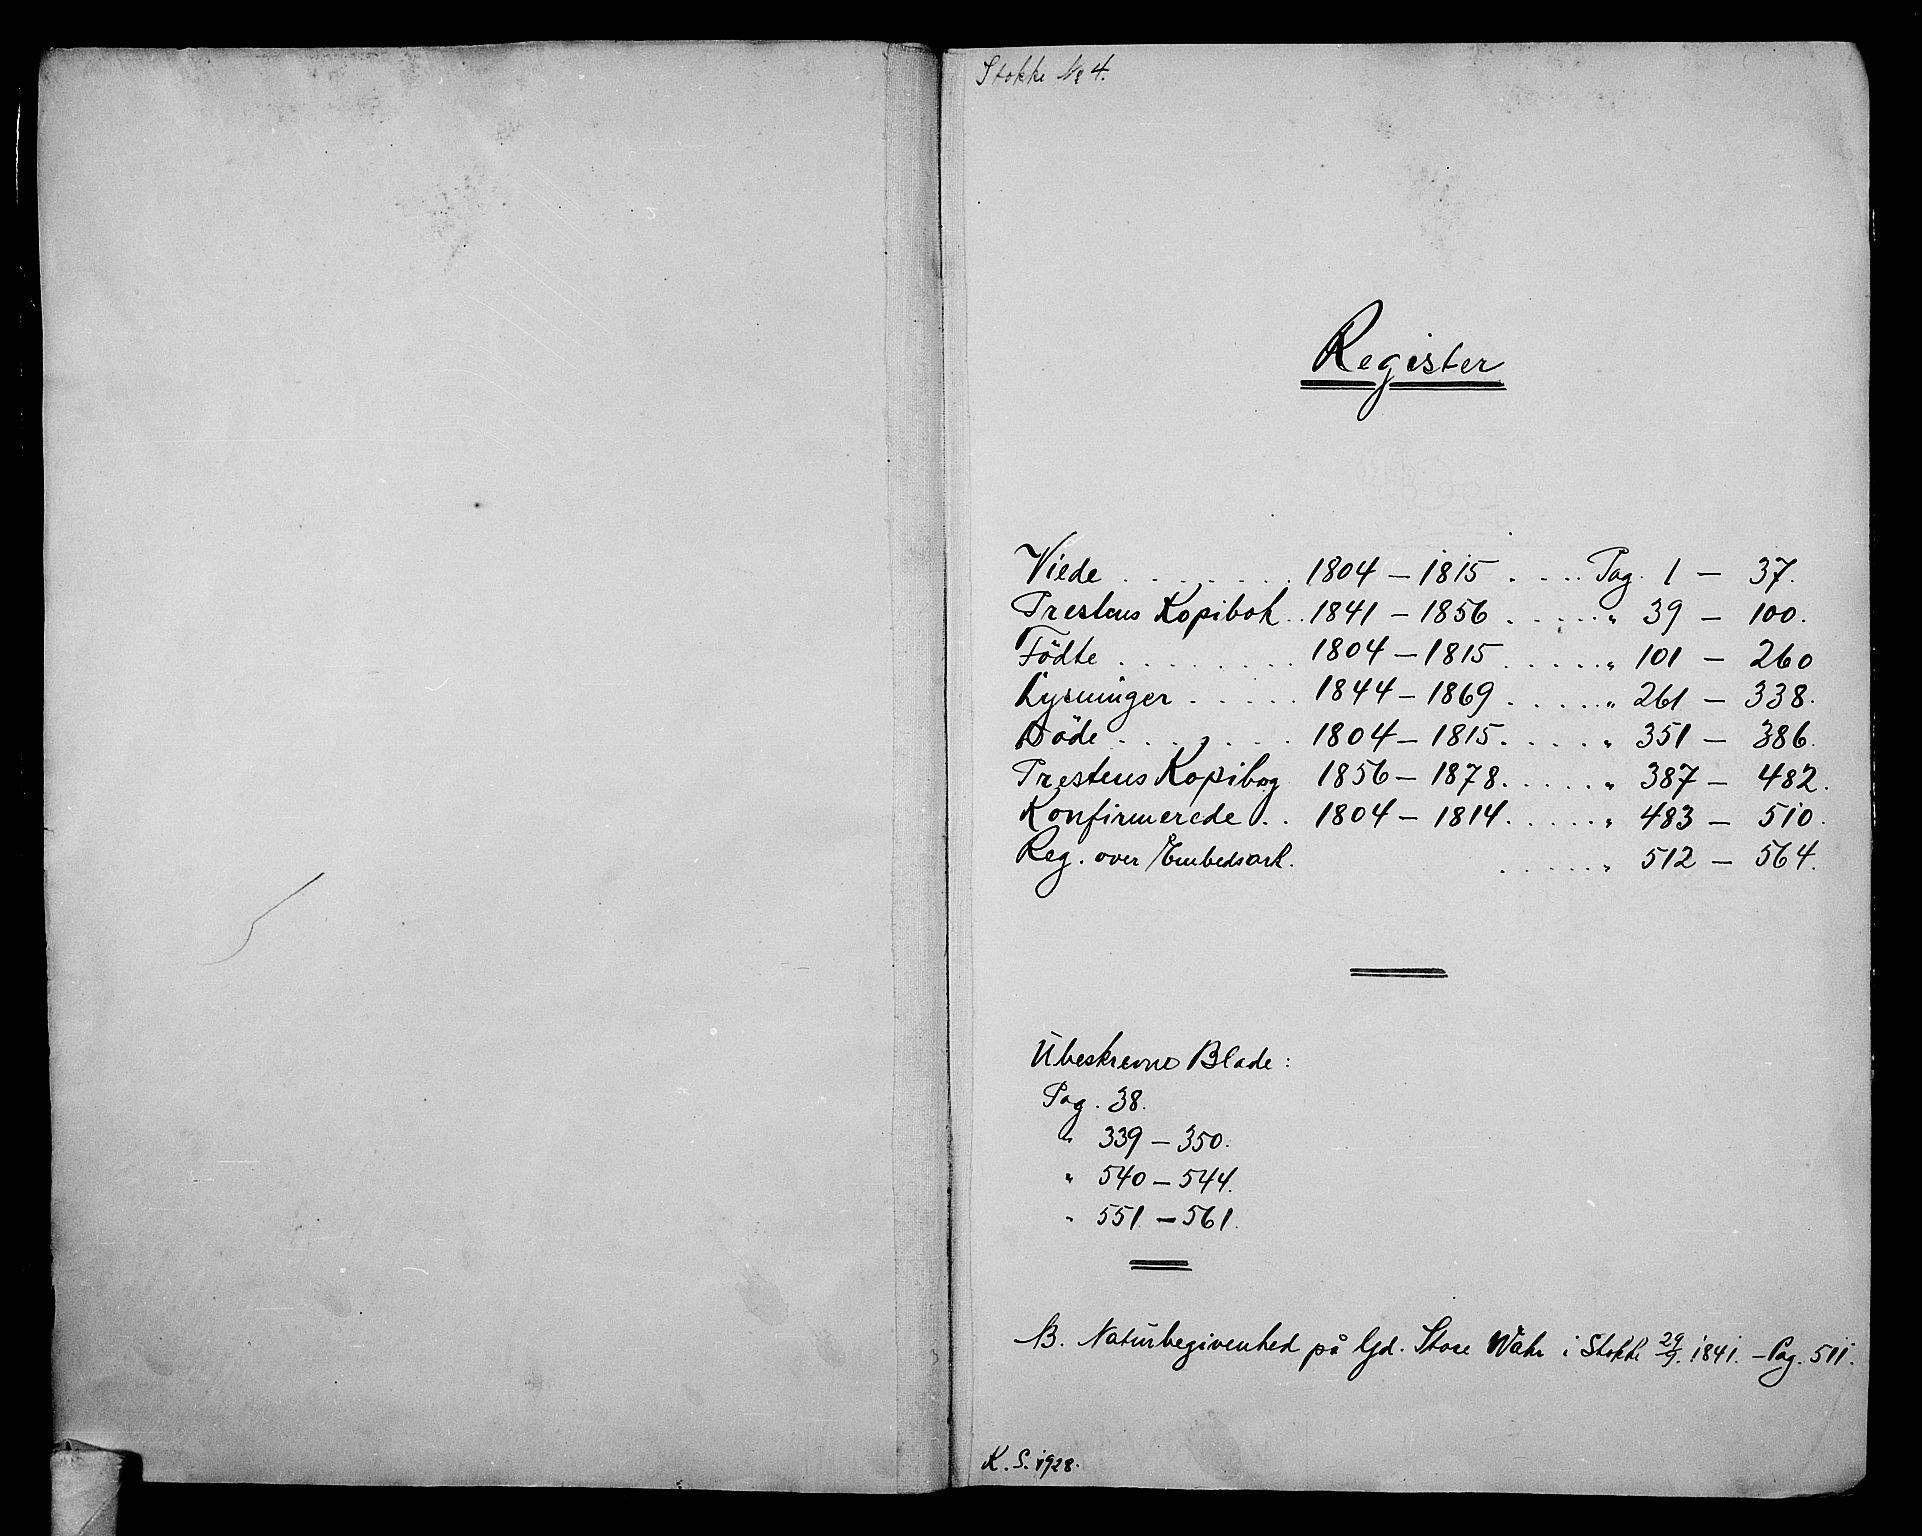 Stokke № 4.
Register
Viede . . . . . . . . 1804 – 1815 . . . . Pag. 1 – 37.
Prestens Kopibok . . 1841 – 1856 . . . . . " 39 – 100.
Födte . . . . . . . . . 1804 – 1815 . . . . . " 101 – 260
Lysninger . . . . . 1844 – 1869 . . . . . " 261 – 338.
Döde . . . . . . . 1804 – 1815 . . . . . " 351 – 386.
Prestens Kopibog 1856 – 1878 . . . . . " 387 – 482.
Konfirmerede . . 1804 – 1814 . . . . . " 483 – 510.
Reg. over Embedsark. . . . . . " 512 – 564.
Ubeskrevne Blade :
Pag. 38.
" 339 – 350.
" 540 – 544.
" 551 – 561.
NB. Naturbegivenhed på Gd. Stoke 29/9. 1841. – Pag. 511.
K. S. 1928.